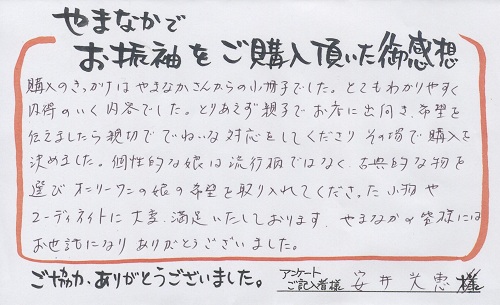 やまなかで
お振袖をご購入頂いた御感想
購入のきっかけはやまなかさんからの小冊子でした。とてもわかりやすく
内得のいく内容でした。とりあえず親子でお店に出向き、希望を
伝えましたら親切でていねいな対応をしてくださり その場で購入を
決めました。個性的な娘は流行柄ではなく、古典的な物を
選びオンリーワンの娘の希望を取り入れてくださった小物や
コーディネイトに大変、満足いたしております。やまなかの皆様には
お世話になりありがとうございました。
ご協力、ありがとうございました。
アンケート
ご記入者様 安井 恵 様